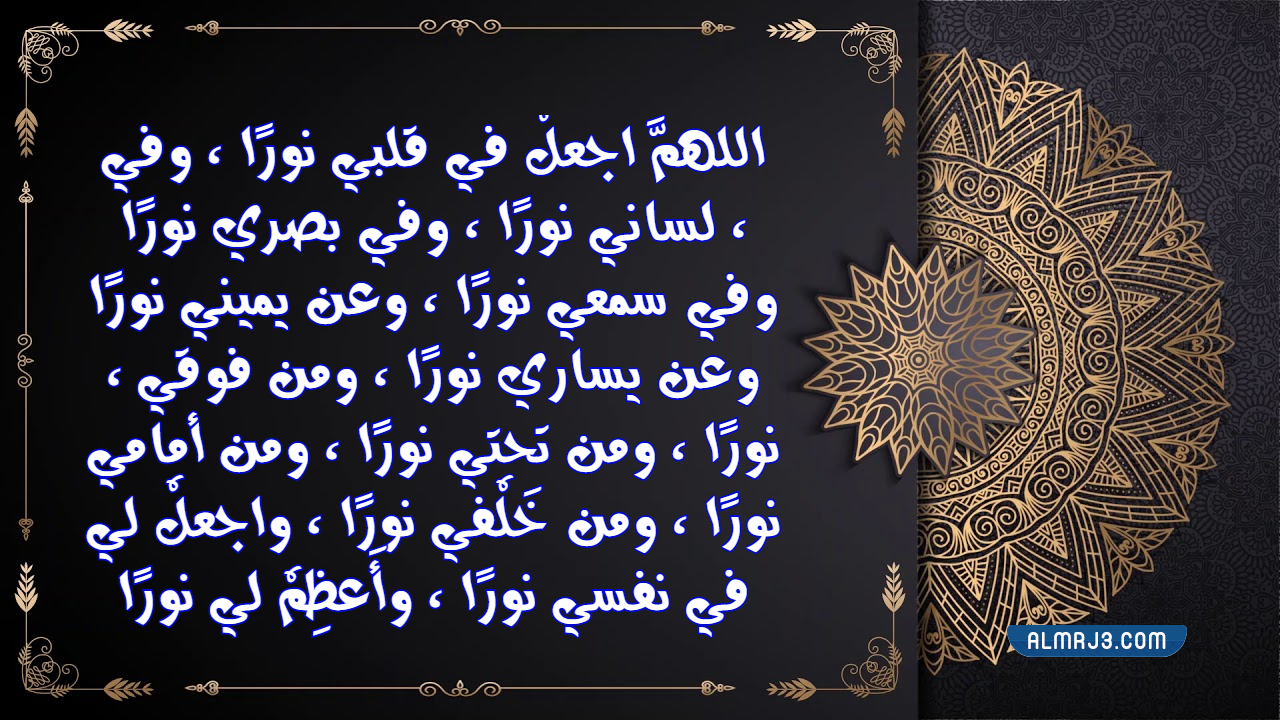 اللهمَّ اجعلْ في قلبي نورًا ، وفي
، لساني نورًا ، وفي بصري نورًا
وفي سمعي نورًا ، وعن يميني نورًا
وعن يساري نورًا ، ومن فوقي ،
نورًا ، ومن تحتي نورًا ، ومن أمامي
نورًا ، ومن خَلْفي نورًا ، واجعلْ لي
في نفسي نورًا ، وأَعظِمْ لي نورًا
ALMRJ3.COM